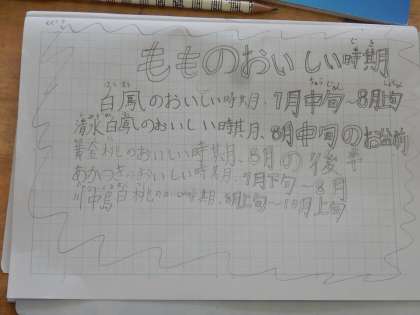 もものおいしい時期
白鳳のおいしい時期、7月中旬〜8月上旬
清水白鳳のおいしい時期、8月中旬のお盆前
黄金桃のおいしい時期、8月の後半
あかつきのおいしい時期、7月下旬〜8月
川中島白桃のおいしい時期、8月上旬〜10月上旬